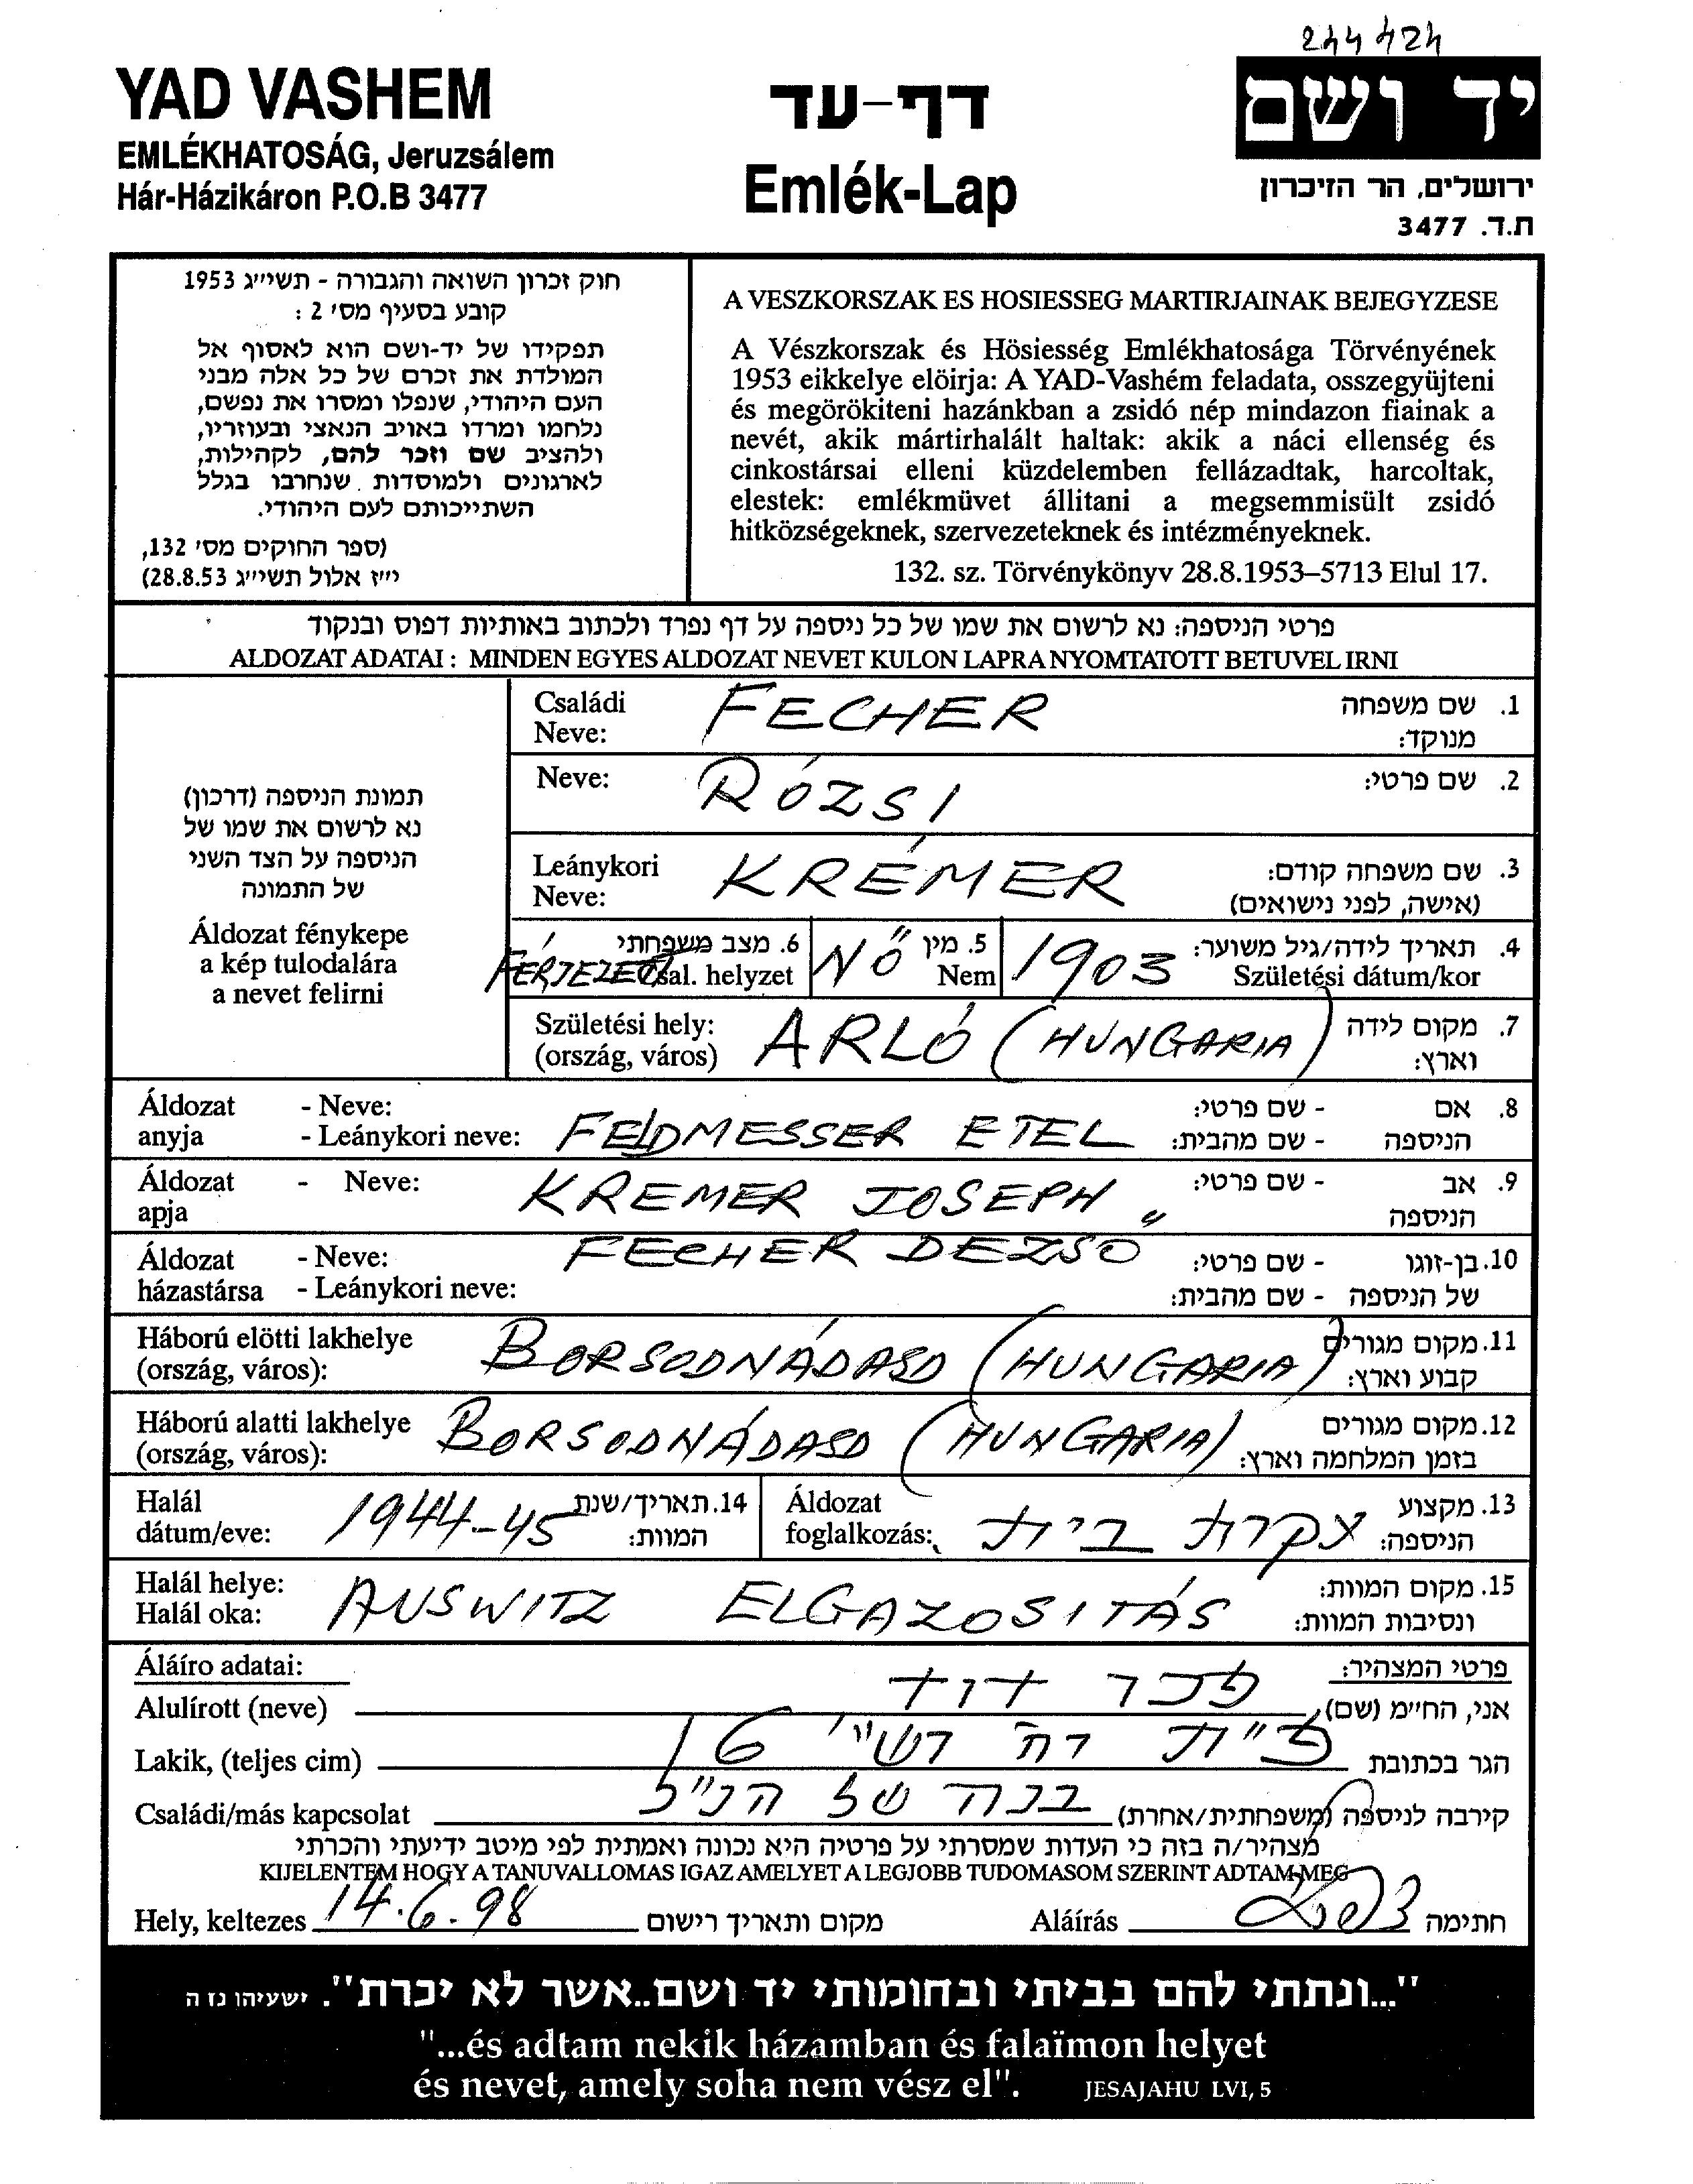 244424
YAD VASHEM
EMLÉKHATOSÁG, Jeruzsálem
Hár-Házikáron P.O.B 3477
דף-עד
Emlék-Lap
יד ושם
ירושלים, הר הזיכרון
ת.ד. 3477
חוק זכרון השואה והגבורה - תשי״ג 1953
קובע בסעיף מס' 2 :
תפקידו של יד-ושם הוא לאסוף אל
המולדת את זכרם של כל אלה מבני
העם היהודי, שנפלו ומסרו את נפשם,
נלחמו ומרדו באויב הנאצי ובעוזריו,
ולהציב שם וזכר להם, לקהילות,
לארגונים ולמוסדות שנחרבו בגלל
השתייכותם לעם היהודי.
(ספר החוקים מס' 132,
י״ז אלול תשי״ג 28.8.53)
A VESZKORSZAK ES HOSIESSEG MARTIRJAINAK BEJEGYZESE
A Vészkorszak és Hösiesség Emlékhatosága Törvényének
1953 eikkelye elöirja: A YAD-Vashém feladata, osszegyüjteni
és megörökiteni hazánkban a zsidó nép mindazon fiainak a
nevét, akik mártirhalált haltak: akik a náci ellenség és
cinkostársai elleni küzdelemben fellázadtak, harcoltak,
elestek: emlékmüvet állitani a megsemmisült zsidó
hitközségeknek, szervezeteknek és intézményeknek.
132. sz. Törvénykönyv 28.8.1953–5713 Elul 17.
פרטי הניספה: נא לרשום את שמו של כל ניספה על דף נפרד ולכתוב באותיות דפוס ובנקוד
ALDOZAT ADATAI : MINDEN EGYES ALDOZAT NEVET KULON LAPRA NYOMTATOTT BETUVEL IRNI
תמונת הניספה (דרכון)
נא לרשום את שמו של
הניספה על הצד השני
של התמונה
Áldozat fénykepe
a kép tulodalára
a nevet felirni
Családi Neve: FECHER 1. שם משפחה מנוקד:
Neve: RÓZSI 2. שם פרטי:
Leánykori Neve: KRÉMER 3. שם משפחה קודם: (אישה, לפני נישואים)
FÉRJEZETT 6. מצב משפחתי Csal. helyzet NŐ 5. מין Nem 1903 4. תאריך לידה/גיל משוער: Születési dátum/kor
Születési hely: (ország, város) ARLÓ (HUNGARIA) 7. מקום לידה וארץ:
Áldozat anyja - Neve: - Leánykori neve: FELDMESSER ETEL - שם פרטי: - שם מהבית: 8. אם הניספה
Áldozat apja - Neve: KREMER JOSEPH - שם פרטי: 9. אב הניספה
Áldozat házastársa - Neve: - Leánykori neve: FECHER DEZSŐ - שם פרטי: - שם מהבית: 10. בן-זוגו של הניספה
Háború elötti lakhelye (ország, város): BORSODNÁDASD (HUNGARIA) 11. מקום מגורים קבוע וארץ:
Háború alatti lakhelye (ország, város): BORSODNÁDASD (HUNGARIA) 12. מקום מגורים בזמן המלחמה וארץ:
Halál dátum/eve: 1944-45 14. תאריך/שנת המוות: Áldozat foglalkozás: עקרת בית 13. מקצוע הניספה:
Halál helye: Halál oka: AUSWITZ ELGAZOSITÁS 15. מקום המוות: ונסיבות המוות:
Áláíro adatai: פרטי המצהיר:
Alulírott (neve) פכר דוד אני, החי״מ (שם)
Lakik, (teljes cim) פ״ת רח' רש״י 61 הגר בכתובת
Családi/más kapcsolat בנה של הנ״ל קירבה לניספה (משפחתית/אחרת)
מצהיר/ה בזה כי העדות שמסרתי על פרטיה היא נכונה ואמתית לפי מיטב ידיעתי והכרתי
KIJELENTEM HOGY A TANUVALLOMAS IGAZ AMELYET A LEGJOBB TUDOMASOM SZERINT ADTAM MEG
Hely, keltezes 14.6.98 מקום ותאריך רישום Aláírás חתימה
"...ונתתי להם בביתי ובחומותי יד ושם..אשר לא יכרת". ישעיהו נז ה
"...és adtam nekik házamban és falaïmon helyet
és nevet, amely soha nem vész el". JESAJAHU LVI, 5